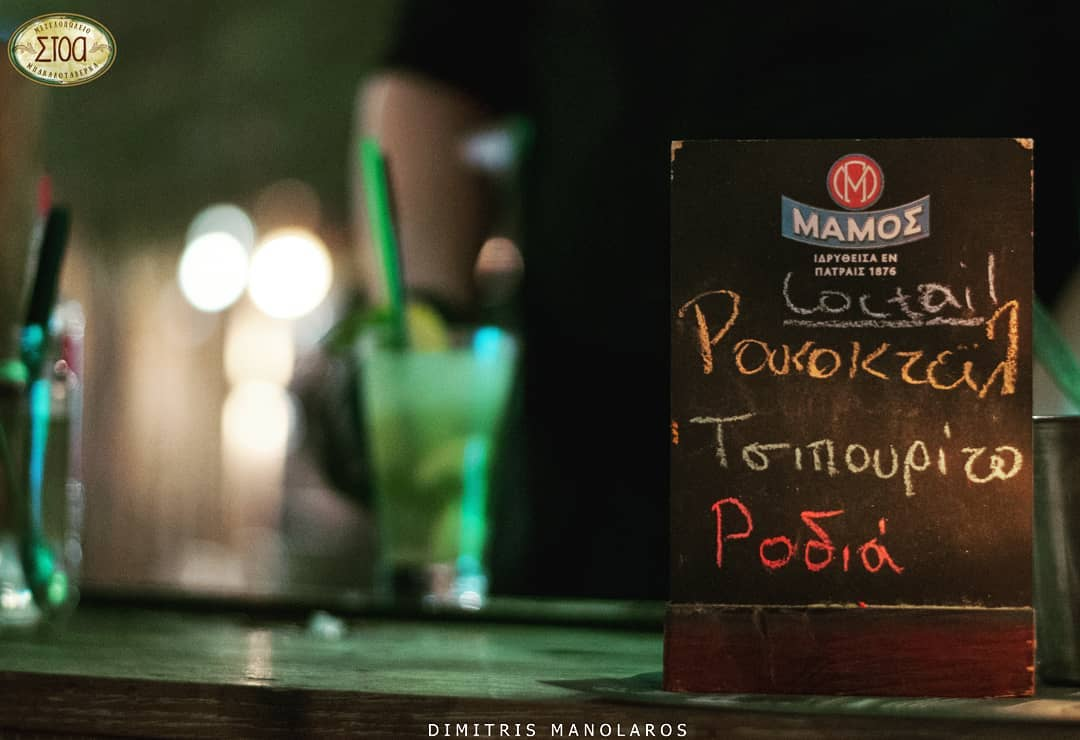 ΜΕΖΕΔΟΠΩΛΕΙΟ
Στοά
ΜΠΑΚΑΛΟΤΑΒΕΡΝΑ
ΜΑΜΟΣ
ΙΔΡΥΘΕΙΣΑ ΕΝ
ΠΑΤΡΑΙΣ 1876
Coctail
Ρακοκτεϊλ
Τσιπουρίτο
Ροδιά
DIMITRIS MANOLAROS